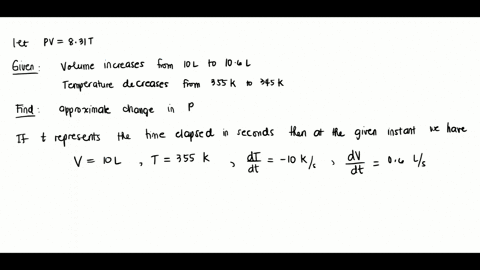 let PV = 8.31T
Given: Volume increases from 10 L to 10.6 L
Temperature decreases from 355 K to 345 K
Find: approximate change in P
If t represents the time elapsed in seconds then at the given instant we have
V = 10 L , T = 355 K , dT/dt = -10 K/s , dV/dt = 0.6 L/s